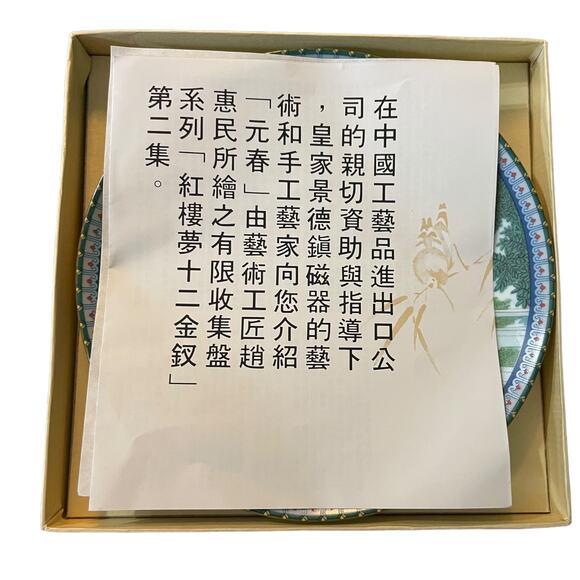 在中國工藝品進出口公
司的親切資助與指導下
，皇家景德鎮磁器的藝
術和手工藝家向您介紹
「元春」由藝術工匠趙
惠民所繪之有限收集盤
系列「紅樓夢十二金釵」
第二集。